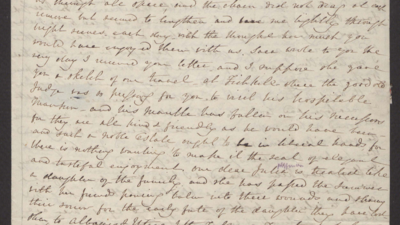 through all space, and the chain did not drag at each
remove but seemed to lengthen and me lightly through
bright scenes each day, with the thought how much you
would have enjoyed them with us. Jane wrote to you the
very day I received your letter, and I suppose she gave
you a sketch of our travel at Fishkill where the good old
Judge was in person for you, to meet his hospitable
Mansion and his mantle has fallen on his successors
for they are all kind & friendly as he would have been
and such a noble Estate ought to be in liberal hands for
there is nothing wanting to make it the seat of elegant
and tasteful enjoyment. our dear Julia is treated like
a daughter of the family and she has passed the summer
with her friend pouring balm into these wounds, and sharing
their sorrow for the early fate of the daughter they have lost